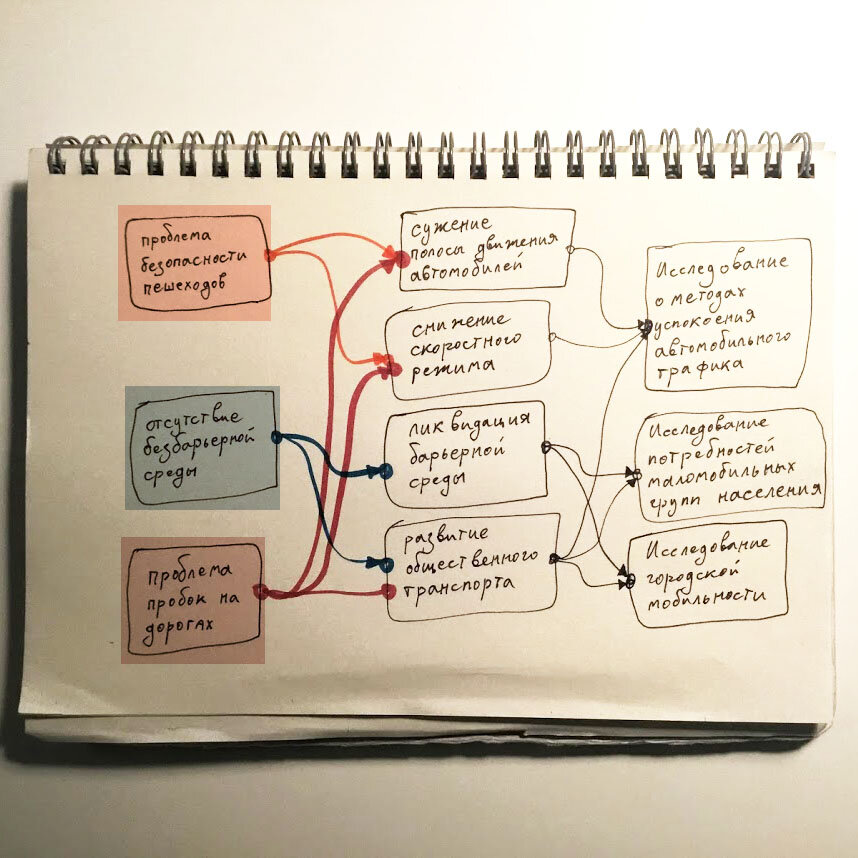 проблема
безопасности
пешеходов
отсутствие
безбарьерной
среды
проблема
пробок на
дорогах
сужение
полосы движения
автомобилей
снижение
скоростного
режима
ликвидация
барьерной
среды
развитие
общественного
транспорта
Исследование
о методах
успокоения
автомобильного
трафика
Исследование
потребностей
маломобильных
групп населения
Исследование
городской
мобильности